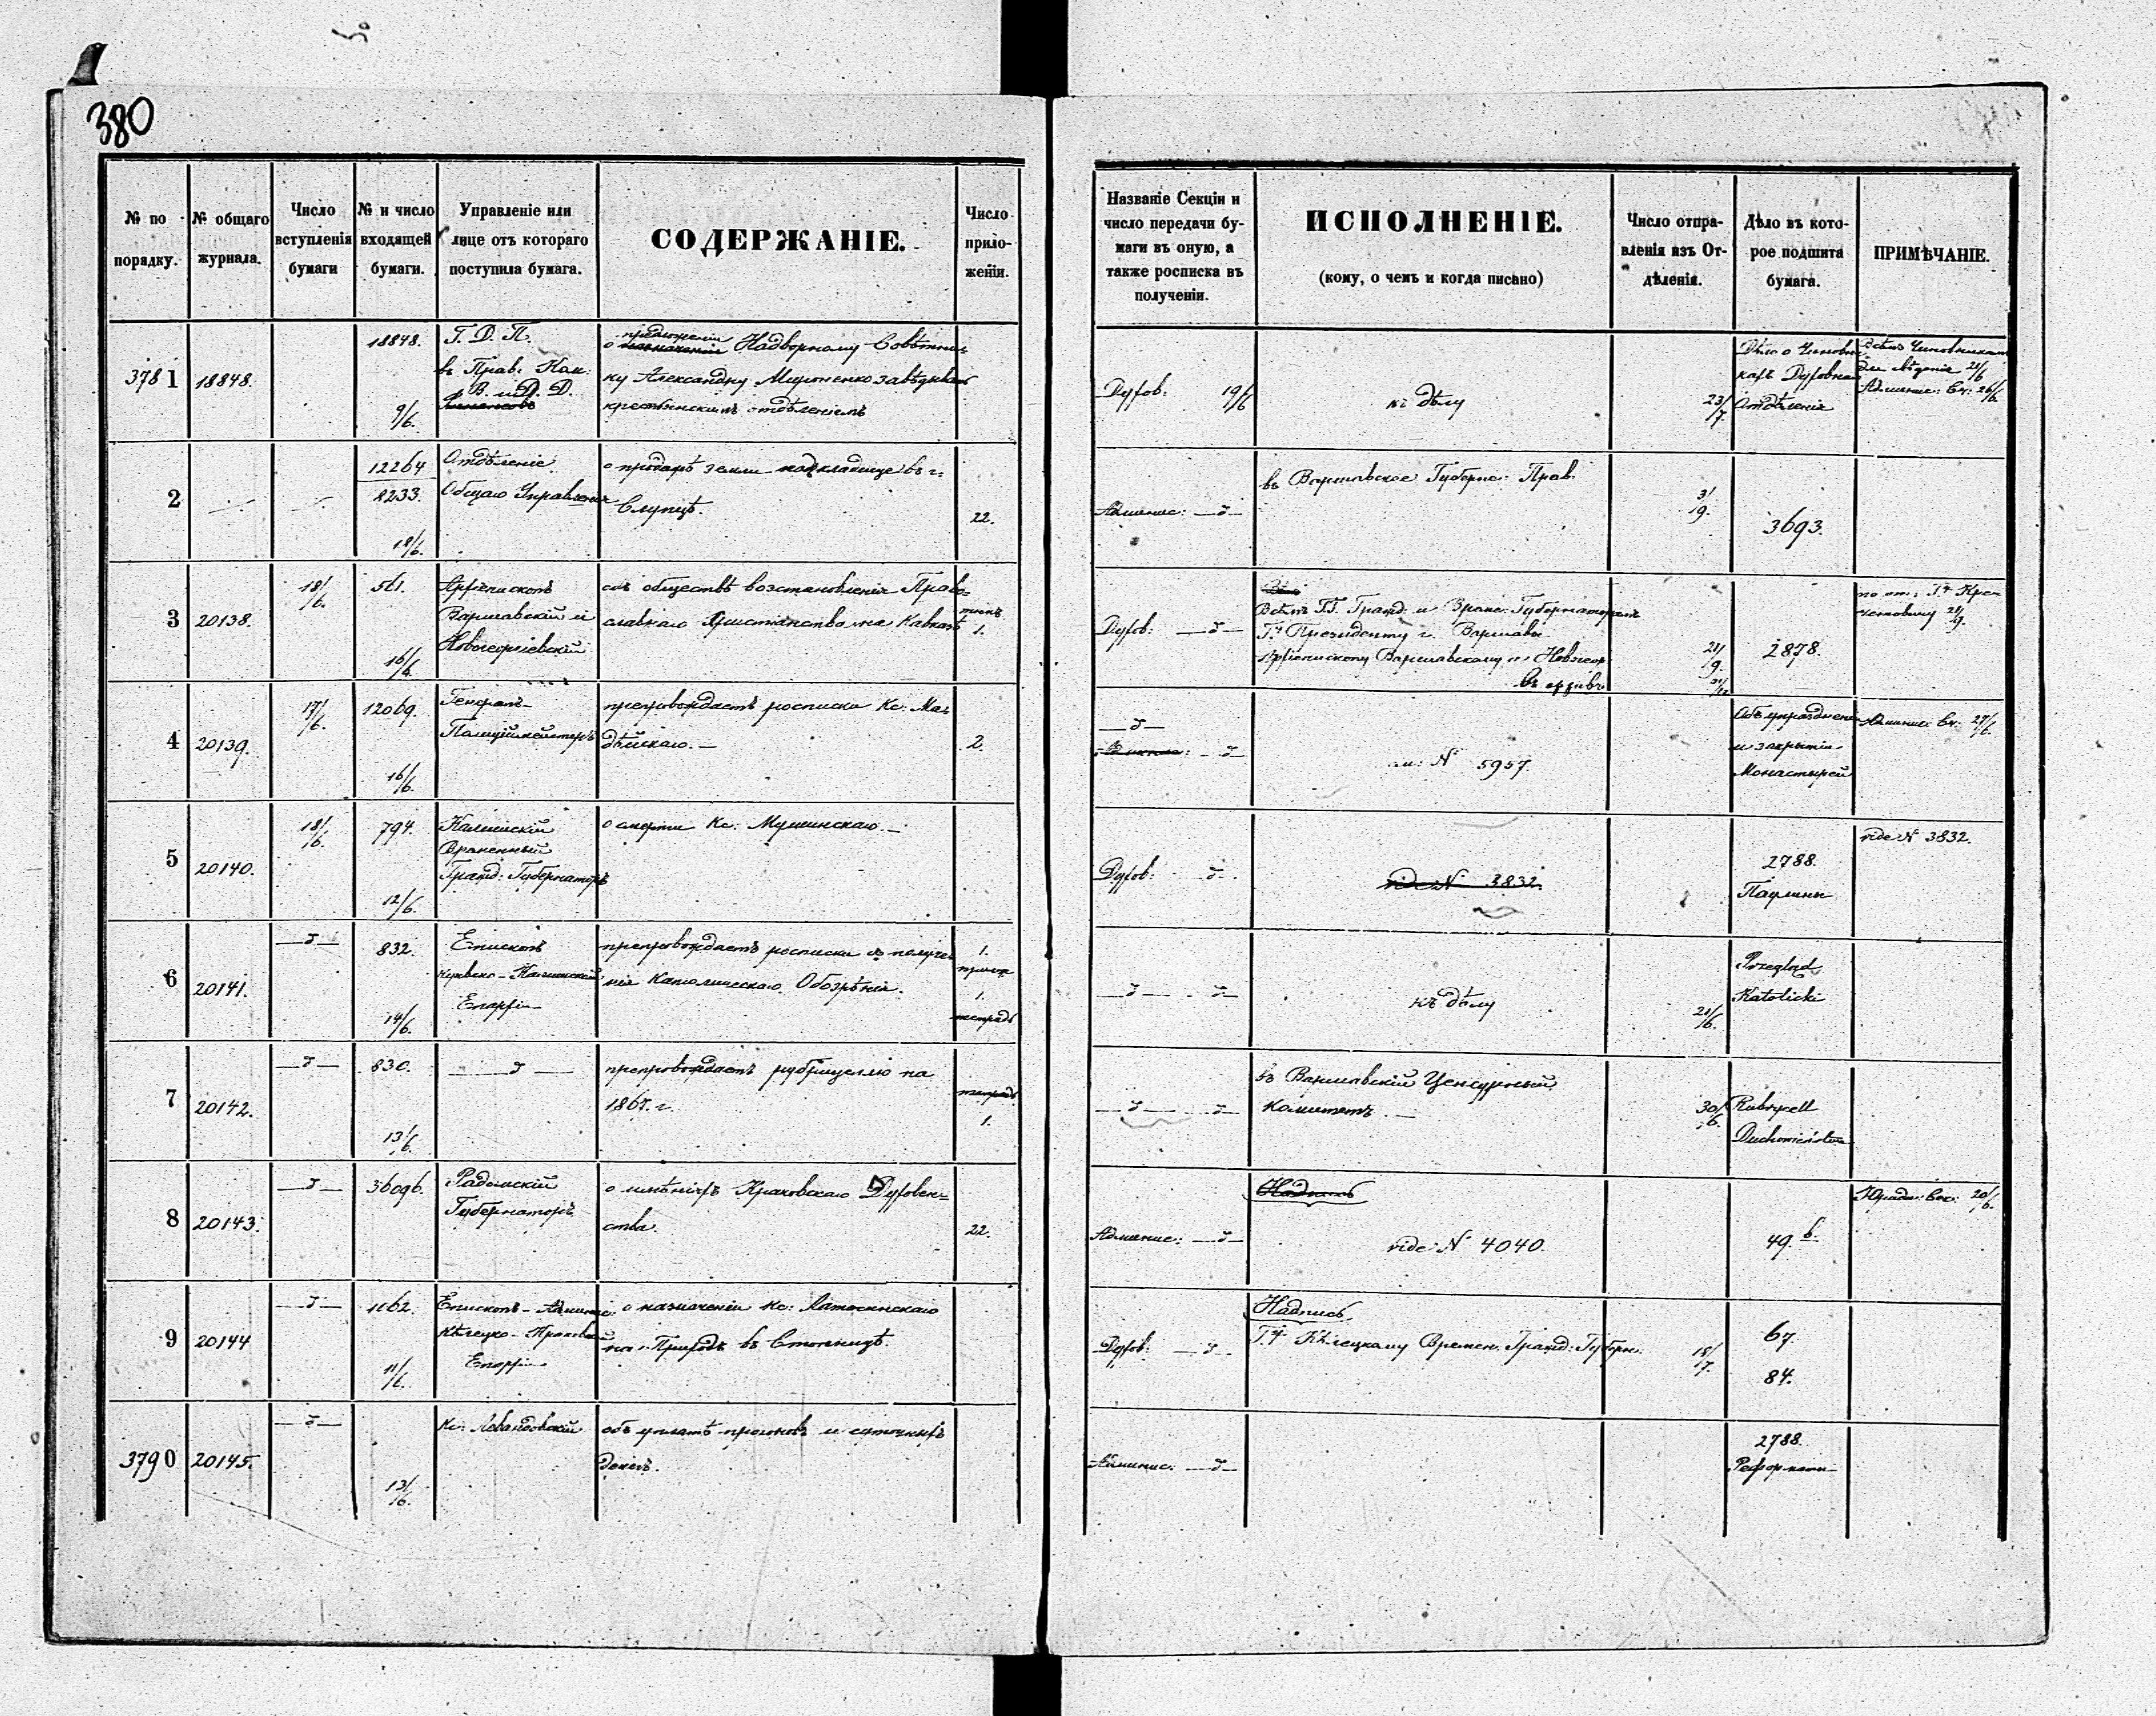 380
№ по порядку.
№ общаго журнала.
Число вступленія бумаги
№ и число входящей бумаги.
Управленіе или лице отъ котораго поступила бумага.
СОДЕРЖАНІЕ.
Число приложеній.
Названіе Секціи и число передачи бумаги въ оную, а также росписка въ полученіи.
ИСПОЛНЕНІЕ.
(кому, о чемъ и когда писано)
Число отправленія изъ Отдѣленія.
Дѣло въ которое подшита бумага.
ПРИМѢЧАНІЕ.
3781
18848.
18848.
9/6.
Г. Д. П.
въ Прав: Ком:
В. и Д. Д.
о предложеніи Надворному Совѣтни-
ку Александру Мироненко завѣдывать
крестьянскимъ отдѣленіемъ
Духов: 19/6
къ дѣлу
23/7.
Дѣло о Чиновни-
кахъ Духовнаго
Отдѣленія
Всѣмъ Чиновникамъ
для свѣдѣнія 21/6
Админис: Сч: 26/6.
2
12264
8233.
18/6.
Отдѣленіе
Общаго Управленія
о продажѣ земли подкладище въ г.
Слупцѣ.
22.
Админис: —„—
въ Варшавское Губернс: Прав.
31/9.
3693.
3
20138.
18/6.
561.
16/6.
Архіепископъ
Варшавскій и
Новогеоргіевскій
объ обществѣ возстановленія Право-
славнаго Христіанства на Кавказѣ
1.
Духов: —„—
Всѣмъ Г.Г. Гражд: и Врамс: Губернаторамъ
Г. Президенту г. Варшавы
Архіепископу Варшавскому и Новогеор
въ архивъ
21/9.
2878.
4
20139.
17/6.
12069.
16/6.
Генералъ-
Полиціймейстеръ
препровождаетъ росписки Кс: Ма-
дѣйскаго. —
2.
—„—
№ 5957.
Объ упраздненіи
и закрытіи
Монастырей
Админис: Сч: 27/6.
5
20140.
18/6.
794.
12/6.
Калишскій
Временный
Гражд: Губернаторъ
о смерти Кс: Мушинскаго. —
Духов: —„—
vide № 3832.
2788.
Паулины
vide № 3832.
6
20141.
—„—
832.
14/6.
Епископъ
Куявско-Калишской
Епархіи
препровождаетъ росписки о получе-
ніи Католическаго Обозрѣнія.
1.
1.
тетрадь
—„— —„—
къ дѣлу
21/6.
Przegląd
Katolicki
7
20142.
—„—
830.
13/6.
—„—
препровождаетъ рубрицеллю на
1867. г.
тетрадь
1.
—„— —„—
въ Варшавскій Ценсурный
Комитетъ. —
30/6.
Rubrycell
Duchowieństwa
8
20143.
—„—
36096.
Радомскій
Губернаторъ
о имѣніяхъ Краковскаго Духовен-
ства.
22.
Админис: —„—
Надпись
vide № 4040.
49. b.
Юридич: Сек: 20/6.
9
20144
—„—
1162.
11/6.
Епископъ-Админис:
Кѣлецко-Краковской
Епархіи
о назначеніи Кс: Латосинскаго
на Приходъ въ Стопницѣ.
Духов: —„—
Надпись
Г. Кѣлецкому Времен: Гражд: Губерн:
18/7.
67.
84.
3790
20145.
—„—
13/6.
Кс: Левандовскій
объ уплатѣ прогоновъ и суточныхъ
денегъ.
Админис: —„—
2788.
Реформаты